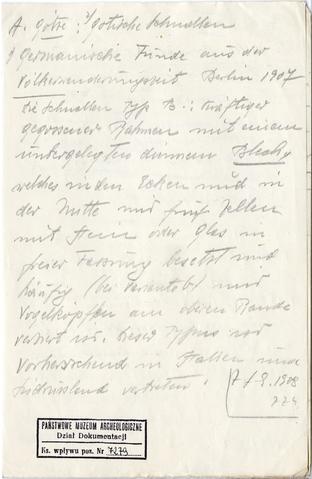 A. Götze: Gotische Schnallen
Germanische Funde aus der
Völkerwanderungszeit Berlin 1907
die Schnallen Typ B.: kräftiger
gegossener Rahmen mit einem
untergelegten dünnem Blech,
welches in den Ecken und in
der Mitte mit fünf Zellen
mit Stein oder Glas in
freier Fassung besetzt und
häufig (bei Variante b) mit
Vogelköpfen am oberen Rande
verziert ist. Dieser Typus ist
vorherrschend in Italien und
Südrussland vertreten.
1908
224
PAŃSTWOWE MUZEUM ARCHEOLOGICZNE
Dział Dokumentacji
Ks. wpływu poz. Nr 7279